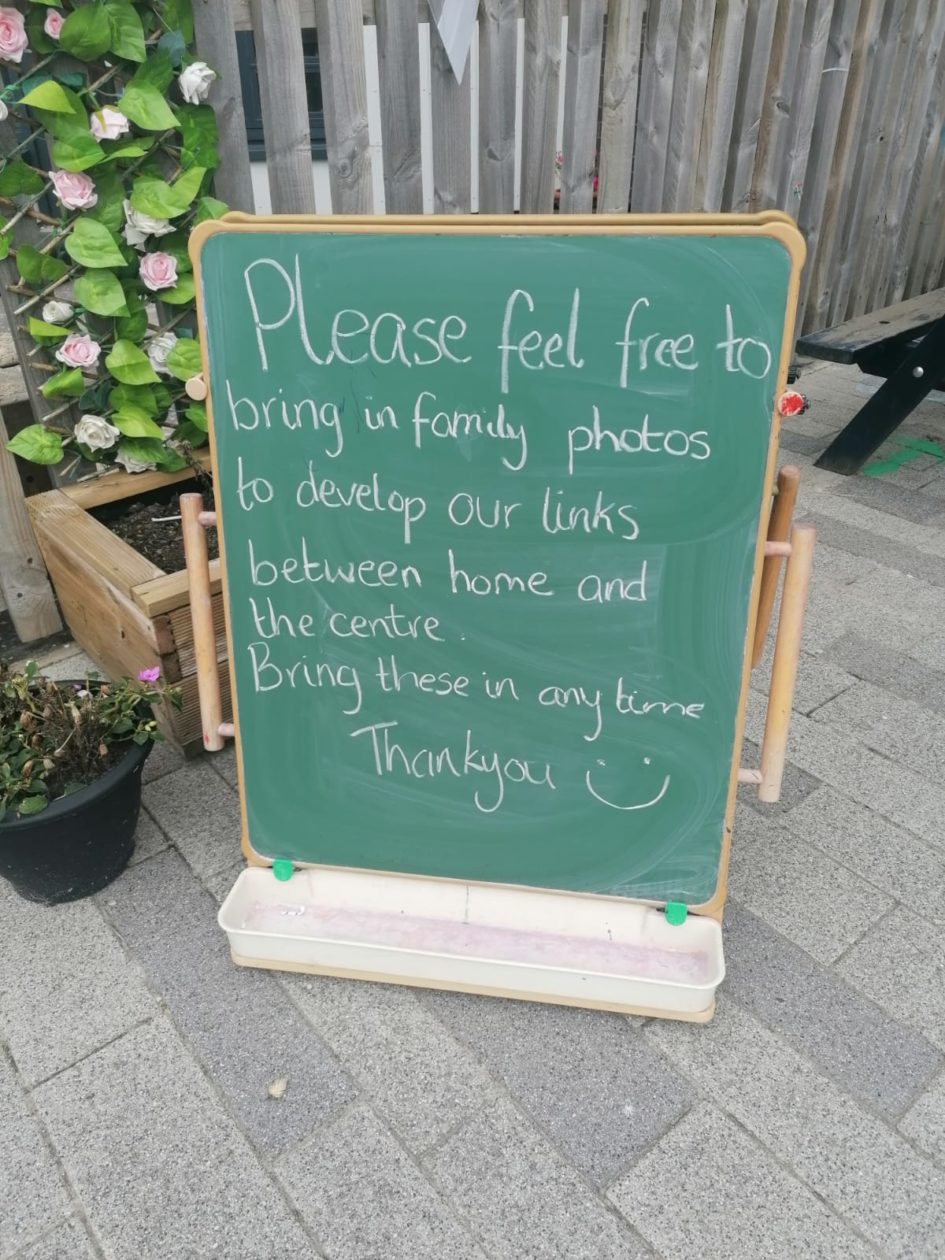 Please feel free to
bring in family photos
to develop our links
between home and
the centre.
Bring these in any time
Thankyou